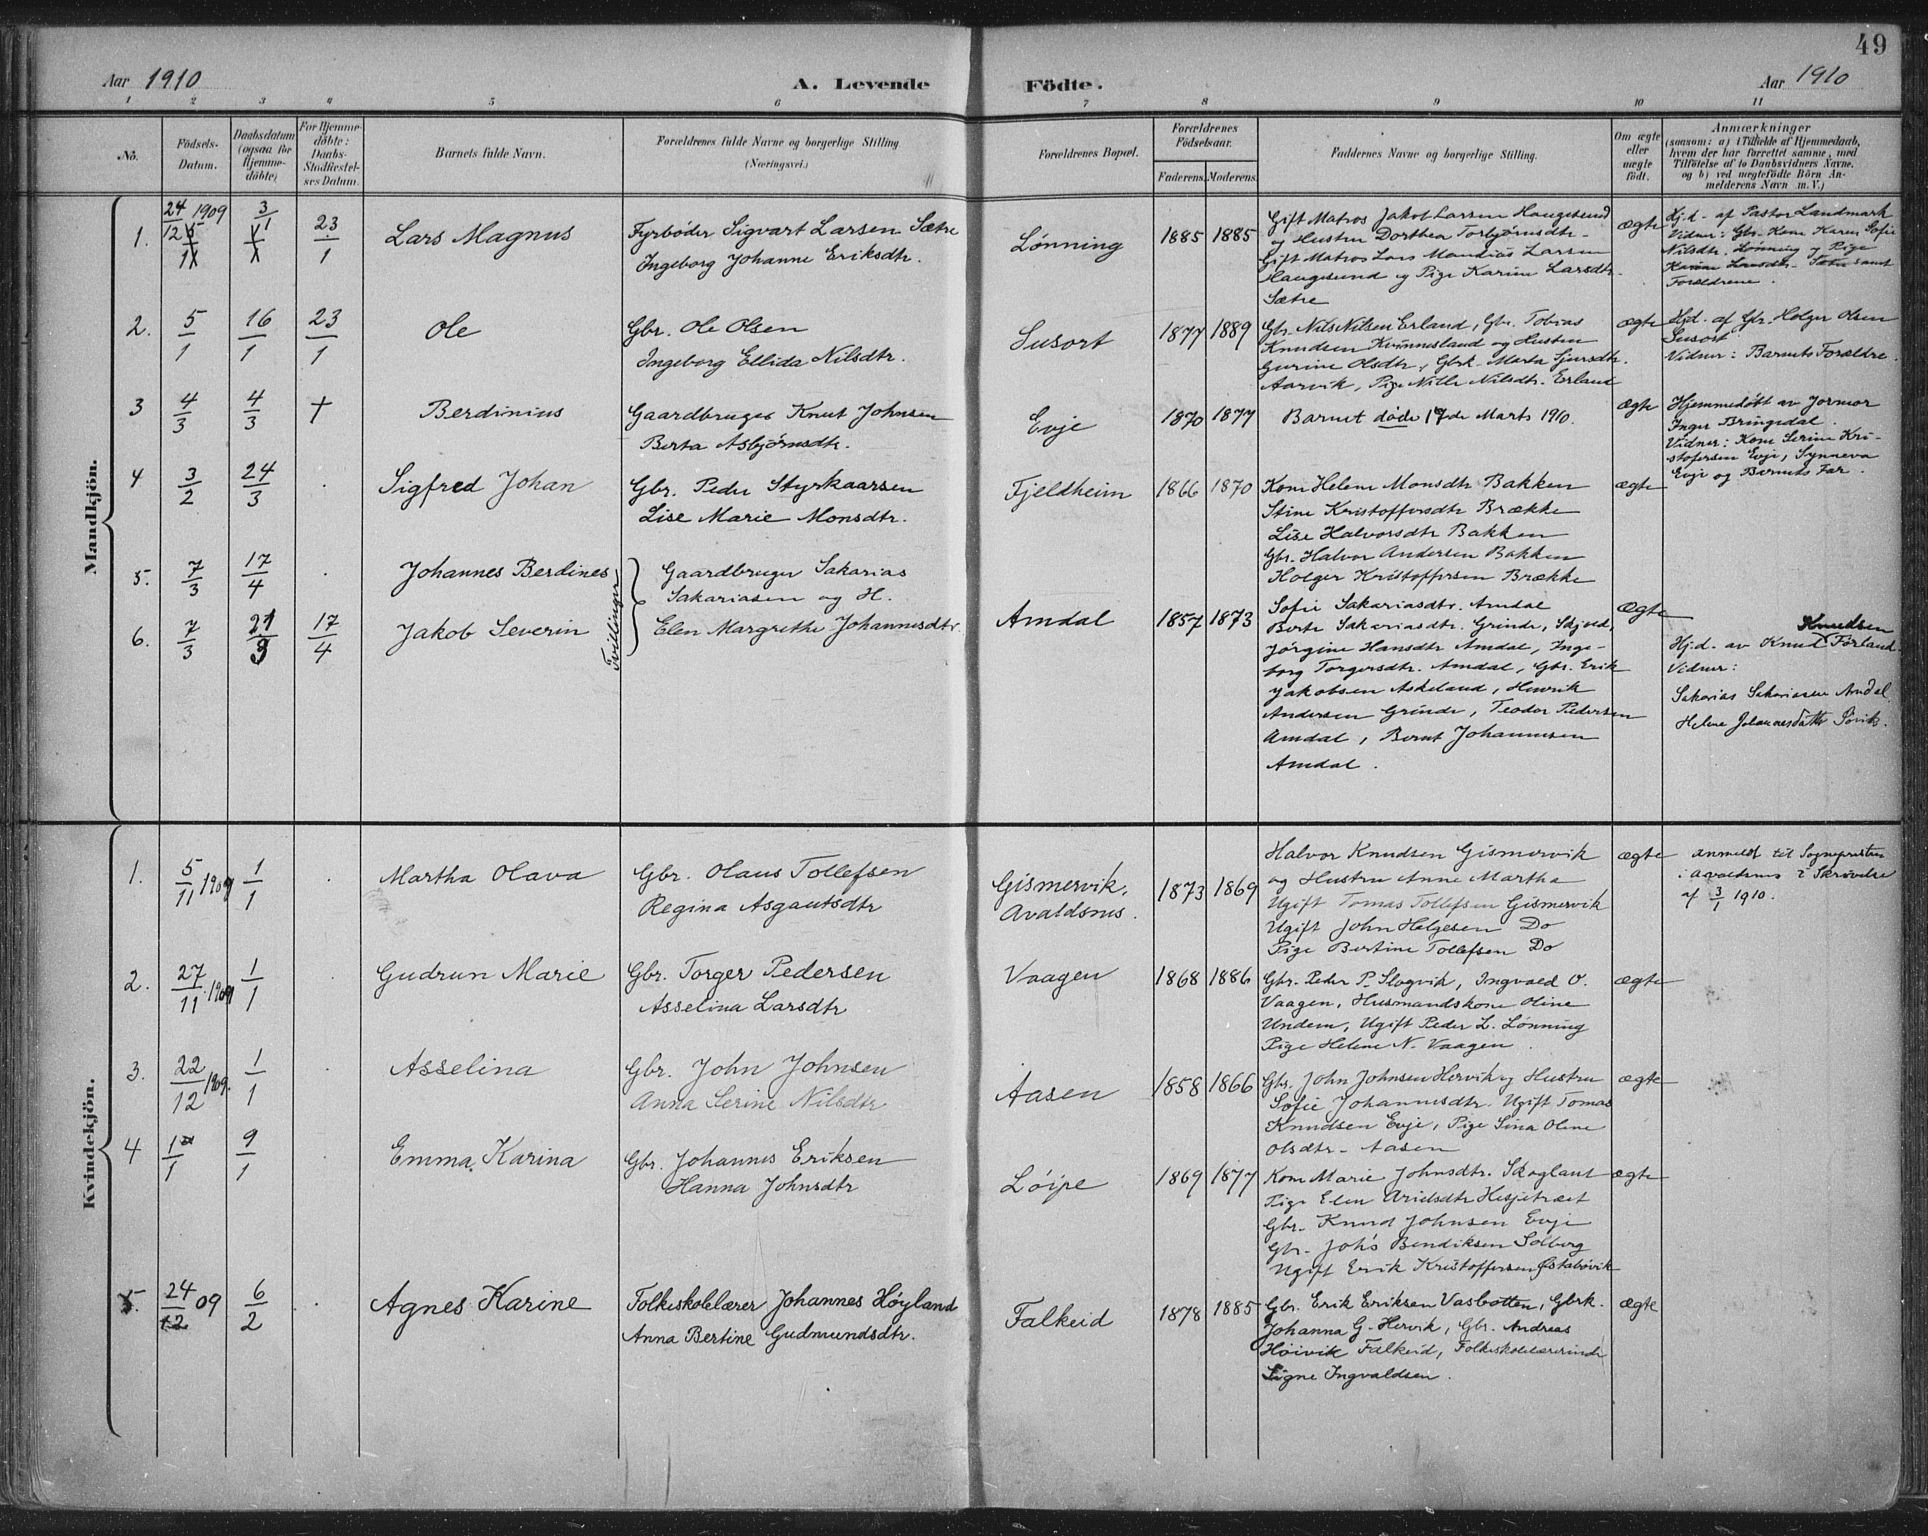 49
Aar 1910 A. Levende Födte. Aar 1910
1 2 3 4 5 6 7 8 9 10 11
No.
Födsels-
Datum.
Daabsdatum
(ogsaa for
Hjemme-
döbte)
For Hjemme-
döbte:
Daabs-
Stadfæstel-
ses Datum.
Barnets fulde Navn.
Forældrenes fulde Navne og borgerlige Stilling.
(Næringsvei.)
Forældrenes Bopæl.
Forældrenes
Födselsaar.
Faderens. Moderens.
Faddernes Navne og borgerlige Stilling.
Om ægte
eller
uægte
født.
Anmærkninger
(saasom: a) i Tilfælde af Hjemmedaab,
hvem der har forrettet samme, med
Tilføielse af to Daabsvidners Navne,
og b) ved uægtefödte Börn An-
melderens Navn m. V.)
Mandkjön.
1. 24/12 1909 3/1 23/1 Lars Magnus
Fyrbøder Sigvart Larsen Sætre
Ingeborg Johanne Eriksdtr.
Lønning 1885 1885
Gift Matros Jakob Larsen Haugesund
og Hustru Dorthea Torbjørnsdtr.
Gift Matros Lars Mandius Larsen
Haugesund og Pige Karine Larsdtr.
Sætre
ægte
Hj.d. af Pastor Landmark
Vidner: Gbr. Kone Karen Sofie
Nilsdtr. Lønning og Pige
Karine Larsdtr. Sætre samt
Forældrene.
2. 5/1 16/1 23/1 Ole
Gbr. Ole Olsen
Ingeborg Ellida Nilsdtr.
Susort 1877 1889
Gbr. Nils Nilsen Erland, Gbr. Tobias
Knudsen Kvinnesland og Hustru
Gurine Olsdtr., Gbrk. Marta Sjursdtr.
Aarvik, Pige Nille Nilsdtr. Erland
ægte
Hjd. af Gbr. Holger Olsen
Susort
Vidner: Barnets Forældre.
3 4/3 4/3 † Berdinius
Gaardbruger Knut Johnsen
Berta Asbjørnsdtr.
Evje 1870 1877
Barnet døde 17de Marts 1910.
ægte
Hjemmedøbt av Jormor
Inger Bringedal.
Vidner: Kone Serine Kri-
stofersen Evje, Synneva
Evje og Barnets Far.
4 3/2 24/3 . Sigfred Johan
Gbr. Peder Styrkaarsen
Lise Marie Monsdtr.
Fjeldheim 1866 1870
Kone Helene Monsdtr Bakken
Stine Kristoffersdtr Brække
Lise Halvorsdtr Bakken
Gbr. Halvor Andersen Bakken
Holger Kristoffersen Brække
ægte
5. 7/3 17/4 . Johannes Berdines
6. 7/3 21/3 17/4 Jakob Severin
Tvillinger
Gaardbruger Sakarias
Sakariasen og H.
Elen Margrethe Johannesdtr.
Amdal 1857 1873
Sofie Sakariasdtr. Amdal
Berte Sakariasdtr. Grinde, Skjold,
Jørgine Hansdtr Amdal, Inge-
borg Torgersdtr. Amdal, Gbr. Erik
Jakobsen Askeland, Henrik
Andersen Grinde, Teodor Pedersen
Amdal, Bernt Johannesen
Amdal.
ægte
Knudsen
Hj.d. av Knud Førland.
Vidner:
Sakarias Sakariasen Amdal
Helene Johannesdatter Søvik.
Kvindekjön.
1. 5/11 1909 1/1 . Martha Olava
Gbr. Olaus Tollefsen
Regina Asgautsdtr
Gismervik,
Avaldsnes.
1873 1869
Halvor Knudsen Gismervik
og Hustru Anne Martha
Ugift Tomas Tollefsen Gismervik
Ugift John Helgesen Do
Pige Bertine Tollefsen Do
ægte
Anmeldt til Sognepresten
i Avaldsnes i Skrivelse
af 3/1 1910.
2. 27/11 1909 1/1 . Gudrun Marie
Gbr. Torger Pedersen
Asselina Larsdtr
Vaagen 1868 1886
Gbr. Peder P. Slogvik, Ingvald O.
Vaagen, Husmandskone Oline
Undem, Ugift Peder L. Lønning
Pige Helene N. Vaagen.
ægte
3. 22/12 1909. 1/1 . Asselina
Gbr. John Johnsen
Anna Serine Nilsdtr
Aasen 1858 1866
Gbr. John Johnsen Hervik og Hustru
Sofie Johannesdtr. Ugift Tomas
Knudsen Evje, Pige Sina Oline
Olsdtr. Aasen
ægte
4 1/1 9/1 . Emma Karina
Gbr. Johannes Eriksen
Hanna Johnsdtr
Løipe 1869 1877
Kone Marie Johnsdtr. Skoglant
Pige Elen Hesjetræet
Gbr. Knud Johnsen Evje
Gbr. Joh's Bendiksen Solberg
Ugift Erik Kristoffersen Østabøvik
ægte
5. 24/12 09 6/2 . Agnes Karine
Folkeskolelærer Johannes Høyland
Anna Bertine Gudmundsdtr.
Falkeid 1878 1885
Gbr. Erik Eriksen Vasbotten, Gbrk.
Johanna G. Hervik, Gbr. Andreas
Høivik Falkeid, Folkeskolelærerinde
Signe Ingvaldsen.
ægte